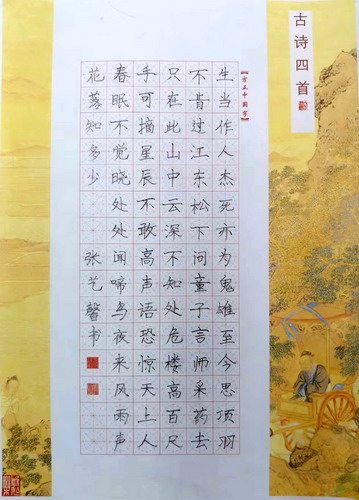 古诗四首
【方正中国字】
生当作人杰死亦为鬼雄至今思项羽
不肯过江东松下问童子言师采药去
只在此山中云深不知处危楼高百尺
手可摘星辰不敢高声语恐惊天上人
春眠不觉晓处处闻啼鸟夜来风雨声
花落知多少 张艺馨书